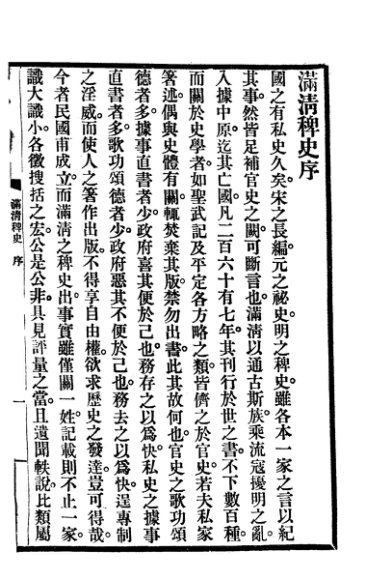 滿淸稗史序
國之有私史久矣宋之長編元之祕史明之稗史雖各本一家之言以紀
其事然皆足補官史之闕可斷言也滿淸以通古斯族乘流寇擾明之亂
入據中原迄其亡國凡二百六十有七年其刊行於世之書不下數百種
而關於史學者如聖武記及平定各方略之類皆儕之於官史若夫私家
箸述偶與史體有關輒焚棄其版禁勿出書此其故何也官史之歌功頌
德者多據事直書者少政府喜其便於己也務存之以爲快私史之據事
直書者多歌功頌德者少政府惡其不便於己也務去之以爲快逞專制
之淫威而使人之箸作出版不得享自由權欲求歷史之發達豈可得哉
今者民國甫成立而滿淸之稗史出事實雖僅關一姓記載則不止一家
識大識小各徵搜括之宏公是公非具見評量之當且遺聞軼說比類屬
滿淸稗史 序
一